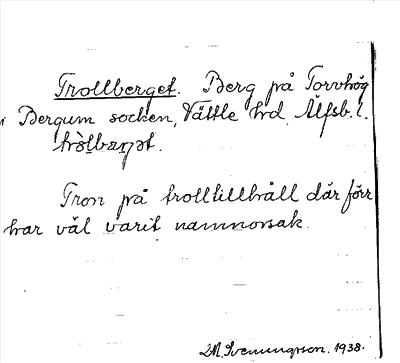 Trollberget. Berg på Torvhög
i Bergum socken, Vättle hd. Älfsb. l.
tròlbaꞃət.
Tron på trolltillhåll där förr
har väl varit namnorsak.
M. Svenungsson. 1938.